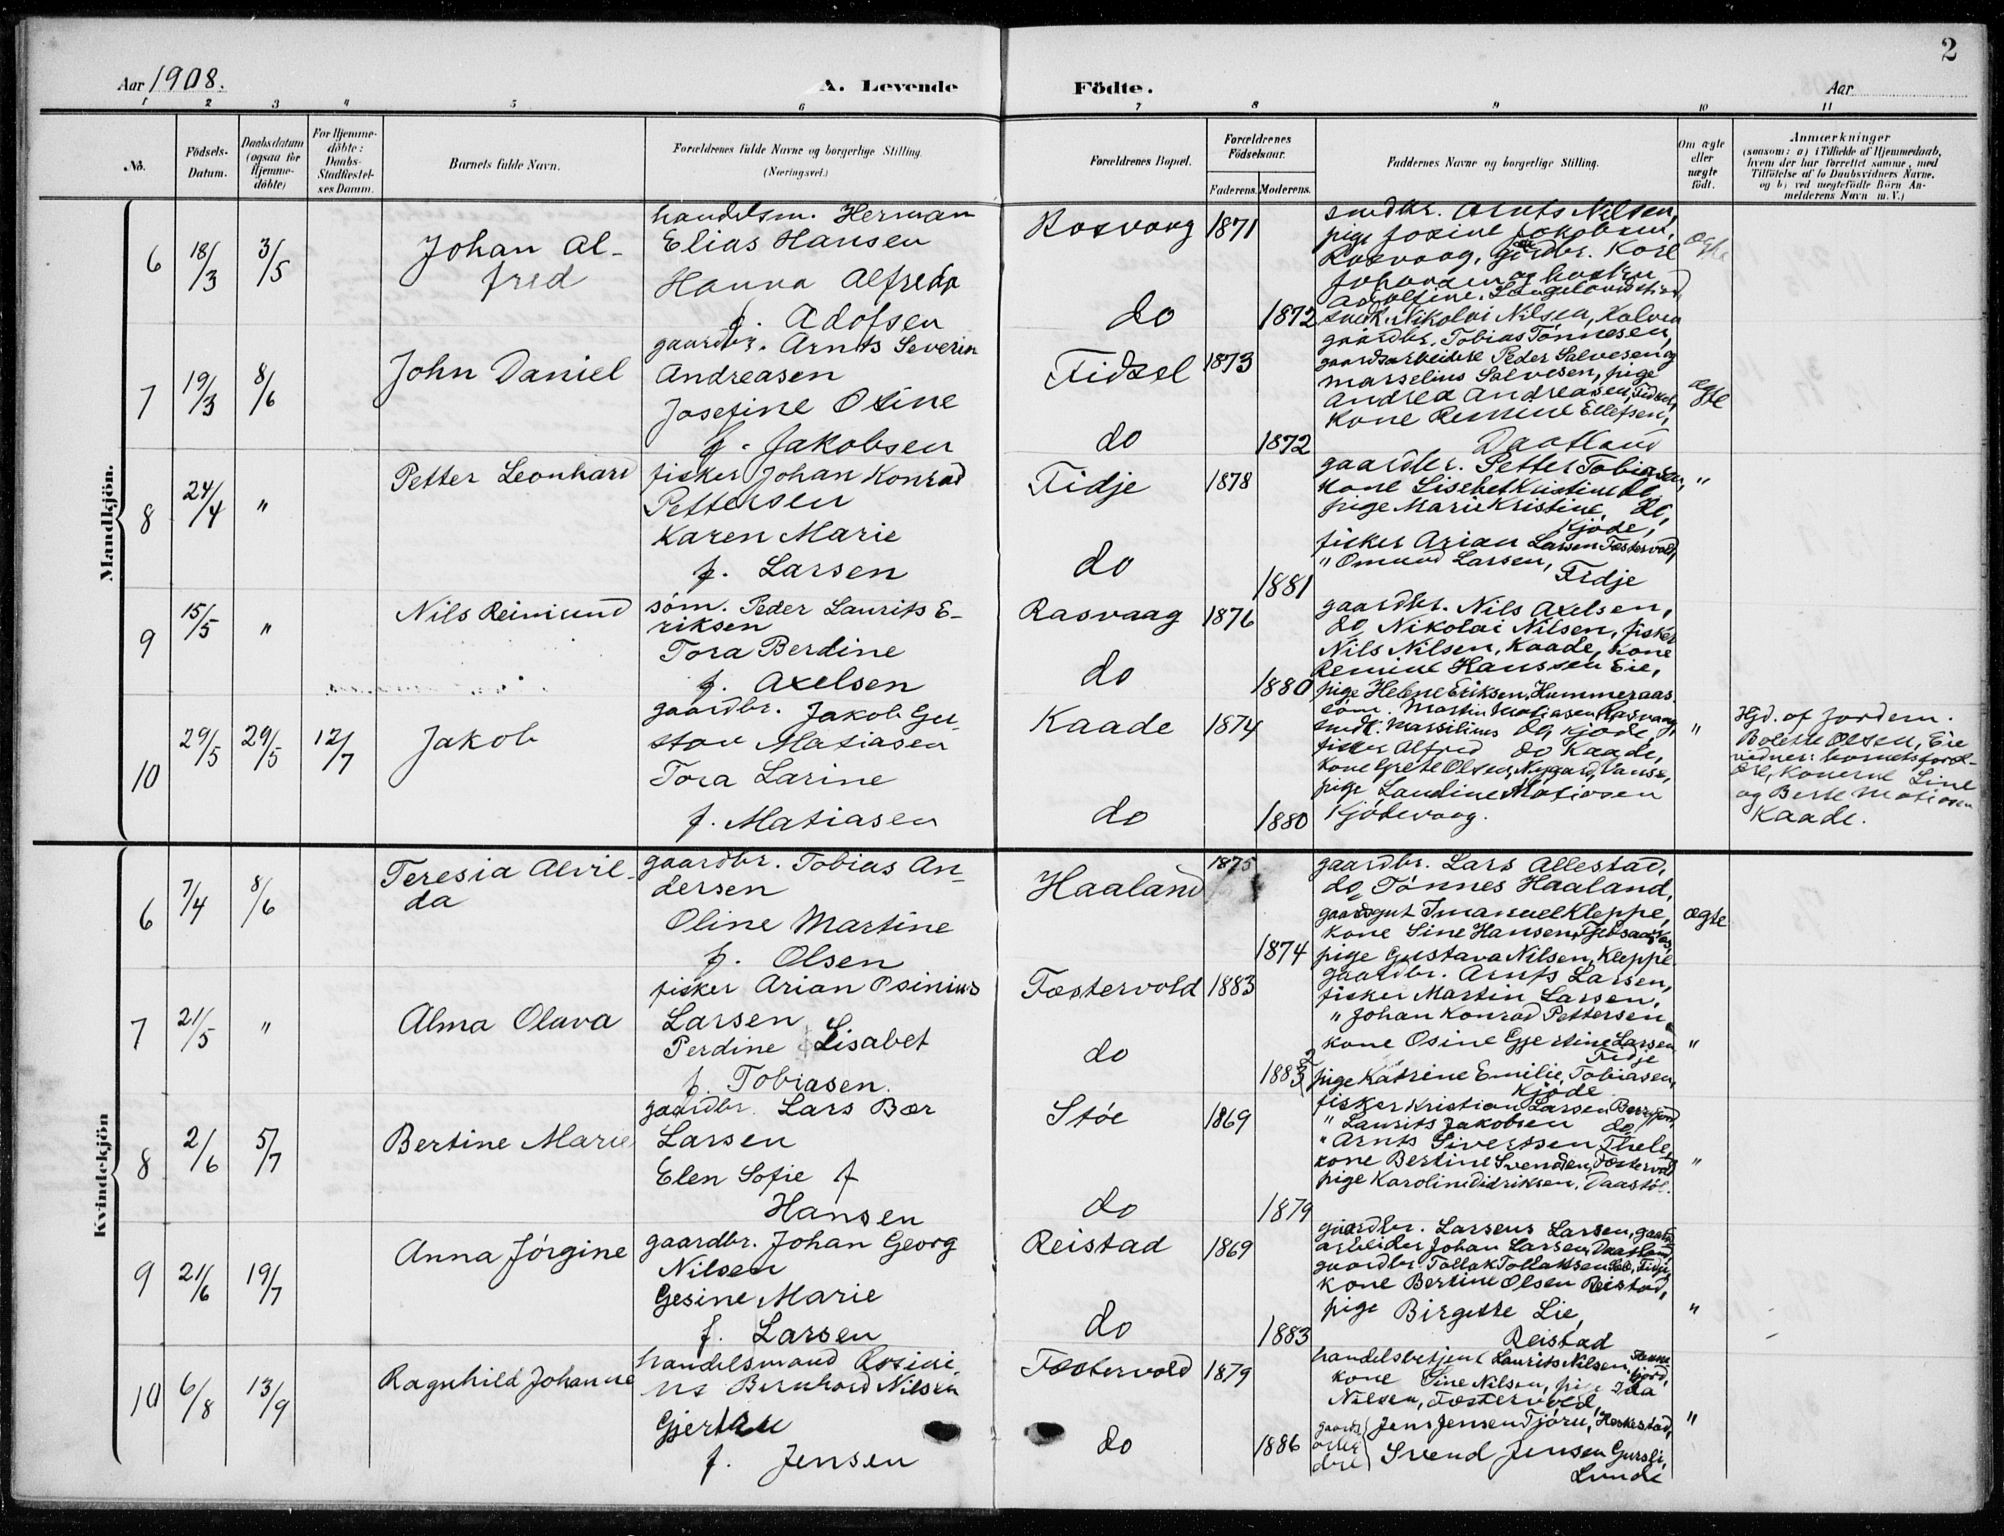 2
Aar 1908.
A. Levende
Födte.
Aar
1 2 3 4 5 6 7 8 9 10 11
No.
Födsels-
Datum.
Daabsdatum
(ogsaa for
Hjemme-
döbte)
For Hjemme-
döbte:
Daabs-
Stadfæstel-
ses Datum.
Barnets fulde Navn.
Forældrenes fulde Navne og borgerlige Stilling.
(Næringsvei.)
Forældrenes Bopæl.
Forældrenes
Födselsaar.
Faderens. Moderens.
Faddernes Navne og borgerlige Stilling.
Om ægte
eller
uægte
födt.
Anmærkninger
(saasom: a) i Tilfælde af Hjemmedaab,
hvem der har forrettet samme, med
Tilföielse af to Daabsvidners Navne,
og b) ved uægtefödte Börn An-
melderens Navn m. V.)
Mandkjön.
6
18/3
3/5
Johan Al-
fred
handelsm. Herman
Elias Hansen
Hanna Alfreda
f. Adofsen
Rasvaag
do
1871
1872
smdbr. Arnts Nilsen,
pige Josine Jakobsen,
Rasvaag, grdbr. Karl
Johansen og hustru
Adolfine,
Nikolai Nilsen, Kalven
ægte
7
19/3
8/6
John Daniel
gaardbr. Arnts Severin
Andreasen
Josefine Osine
f. Jakobsen
Fidsel
do
1873
1872
gaardbr. Tobias Tønnesen,
gaardsarbeidere Peder Salvesen og
Marselius Salvesen, pige
Andrea Andreasen, Fidsel,
kone Remine Ellefsen,
Daatland
ægte
8
24/4
"
Petter Leonhard
fisker Johan Konrad
Pettersen
Karen Marie
f. Larsen
Fidje
do
1878
1881
gaardbr. Petter Tobiassen,
kone Lisebet Kristine do
pige Marie Kristine do,
Kjöde,
fisker Arian Larsen Fæstervold,
" Omund Larsen,
Fidje
"
9
15/5
"
Nils Reimund
søm. Peder Laurits E-
riksen
Tora Berdine
f. Axelsen
Rasvaag
do
1876
1880
gaardbr. Nils Axelsen,
do Nikolai Nilsen, fisker
Nils Nilsen, Kaade, kone
Remine Hanssen Eie,
pige Helene Eriksen, Hummeraas
10
29/5
29/5
12/7
Jakob
gaardbr. Jakob Gu-
stav Matiasen
Tora Larine
f. Matiasen
Kaade
do
1874
1880
søm. Martin Matiasen, Rasvaag,
smdk. Marsilius do, Kjöde,
fisker Alfred do Kaade,
kone Grete Olsen, Nygaard, Vanse,
pige Laudine Matiasen
Kjödevaag.
"
Hjd. af Jordem.
Bolette Olsen, Eie
vidner: barnets foræl-
dre, konerne Line
og Berte Matiasen
Kaade.
Kvindekjön
6
7/4
8/6
Teresia Alvil-
da
gaardbr. Tobias An-
dersen
Oline Martine
f. Olsen
Haaland
1875
1874
gaardbr. Lars Allestad,
do Tønnes Haaland,
gaardsgut Imanuel Kleppe,
kone Sine Hansen,
pige Gustava Nilsen, Kleppe
ægte
7
21/5
"
Alma Olava
fisker Arian Osinius
Larsen
Perdine Lisabet
f. Tobiasen.
Fæstervold
do
1883
1882
gaardbr. Arnts Larsen,
fisker Martin Larsen,
" Johan Konrad Pettersen
kone Osine Gjertine Larsen
Fidje
pige Katrine Emilie Tobiasen,
Kjöde.
"
8
2/6
5/7
Bertine Marie
gaardbr. Lars Bær
Larsen
Elen Sofie f
Hansen
Støe
do
1869
1879
fisker Kristian Larsen
" Laurits Jakobsen do
" Arnts Sivertsen Thele,
kone Bertine Svendsen, Fæstervold
pige Karoline Didriksen, Daastøl.
"
9
21/6
19/7
Anna Jörgine
gaardbr. Johan Georg
Nilsen
Gesine Marie
f. Larsen
Reistad
do
1869
1883
gaardbr. Larsens Larsen, gaards
arbeider Johan Larsen, Daatland,
gaardbr. Tollak Tollaksen Fidje
kone Bertine Olsen Reistad,
pige Birgette Lie,
Reistad
"
10
6/8
13/9
Ragnhild Johanne
handelsmand Rosini-
us Bernhard Nilsen
Gjertru
f. Jensen
Fæstervold
do
1879
1886
handelsbetjent Laurits Nilsen,
kone Sine Nilsen, pige Ida
Nilsen, Fæstervold,
gaards
arbei
dere
Jens Jensen Tjörn, Heskestad,
Svend Jensen Gursli,
Lunde
"